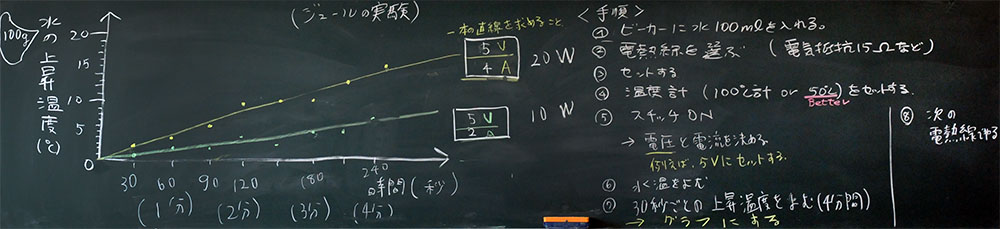 (ジュールの実験)
一本の直線を求めること
100g
水の上昇温度(℃)
20
15
10
5
0
5V
4A
20W
5V
2A
10W
30 60 90 120 180 240
時間(秒)
(1分) (2分) (3分) (4分)
<手順>
① ビーカーに水100mlを入れる。
② 電熱線を選ぶ (電気抵抗15Ωなど)
③ セットする
④ 温度計 (100℃計 or 50℃)をセットする。
Better
⑤ スイッチON
→ 電圧と電流を決める
例えば、5Vにセットする.
⑥ 水温をよむ
⑦ 30秒ごとの上昇温度をよむ(4分間)
→ グラフにする
⑧ 次の
電熱線